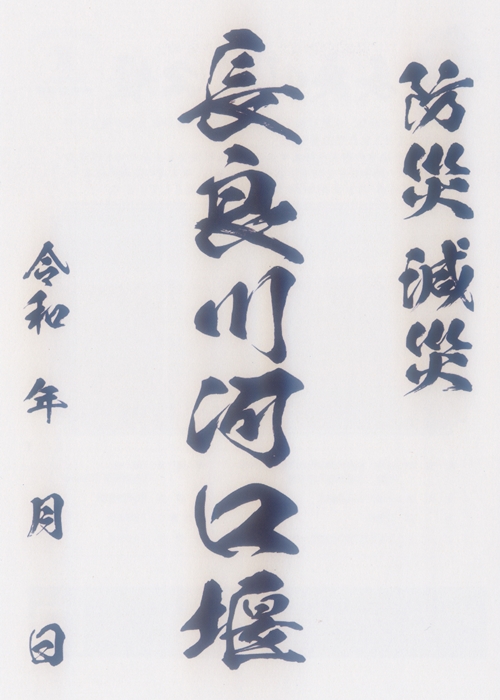 防災減災
長良川河口堰
令和 年 月 日